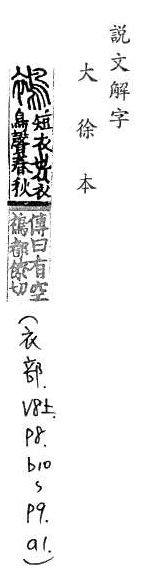 説文解字
大徐本
䙚 短衣也从衣
鳥聲春秋
傳曰有空
䙚都僚切
(衣部. V8上. P8. b10 ~ P9. a1.)